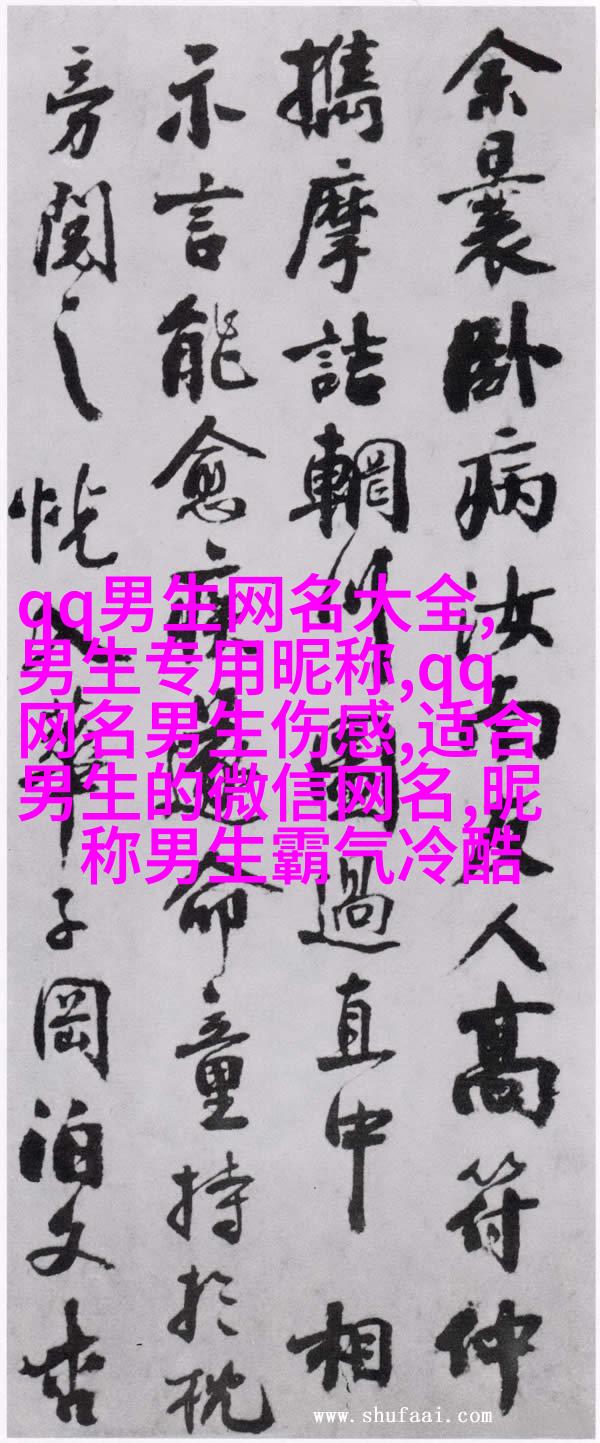 余曩卧病汝南友人高符仲
攜摩詰輞川圖過直中相
示言能愈疾遂命童持於枕
旁閱之恍入華子岡泊文杏
qq男生网名大全,
男生专用昵称,qq
网名男生伤感,适合
男生的微信网名,昵
称男生霸气冷酷
www.shufaai.com